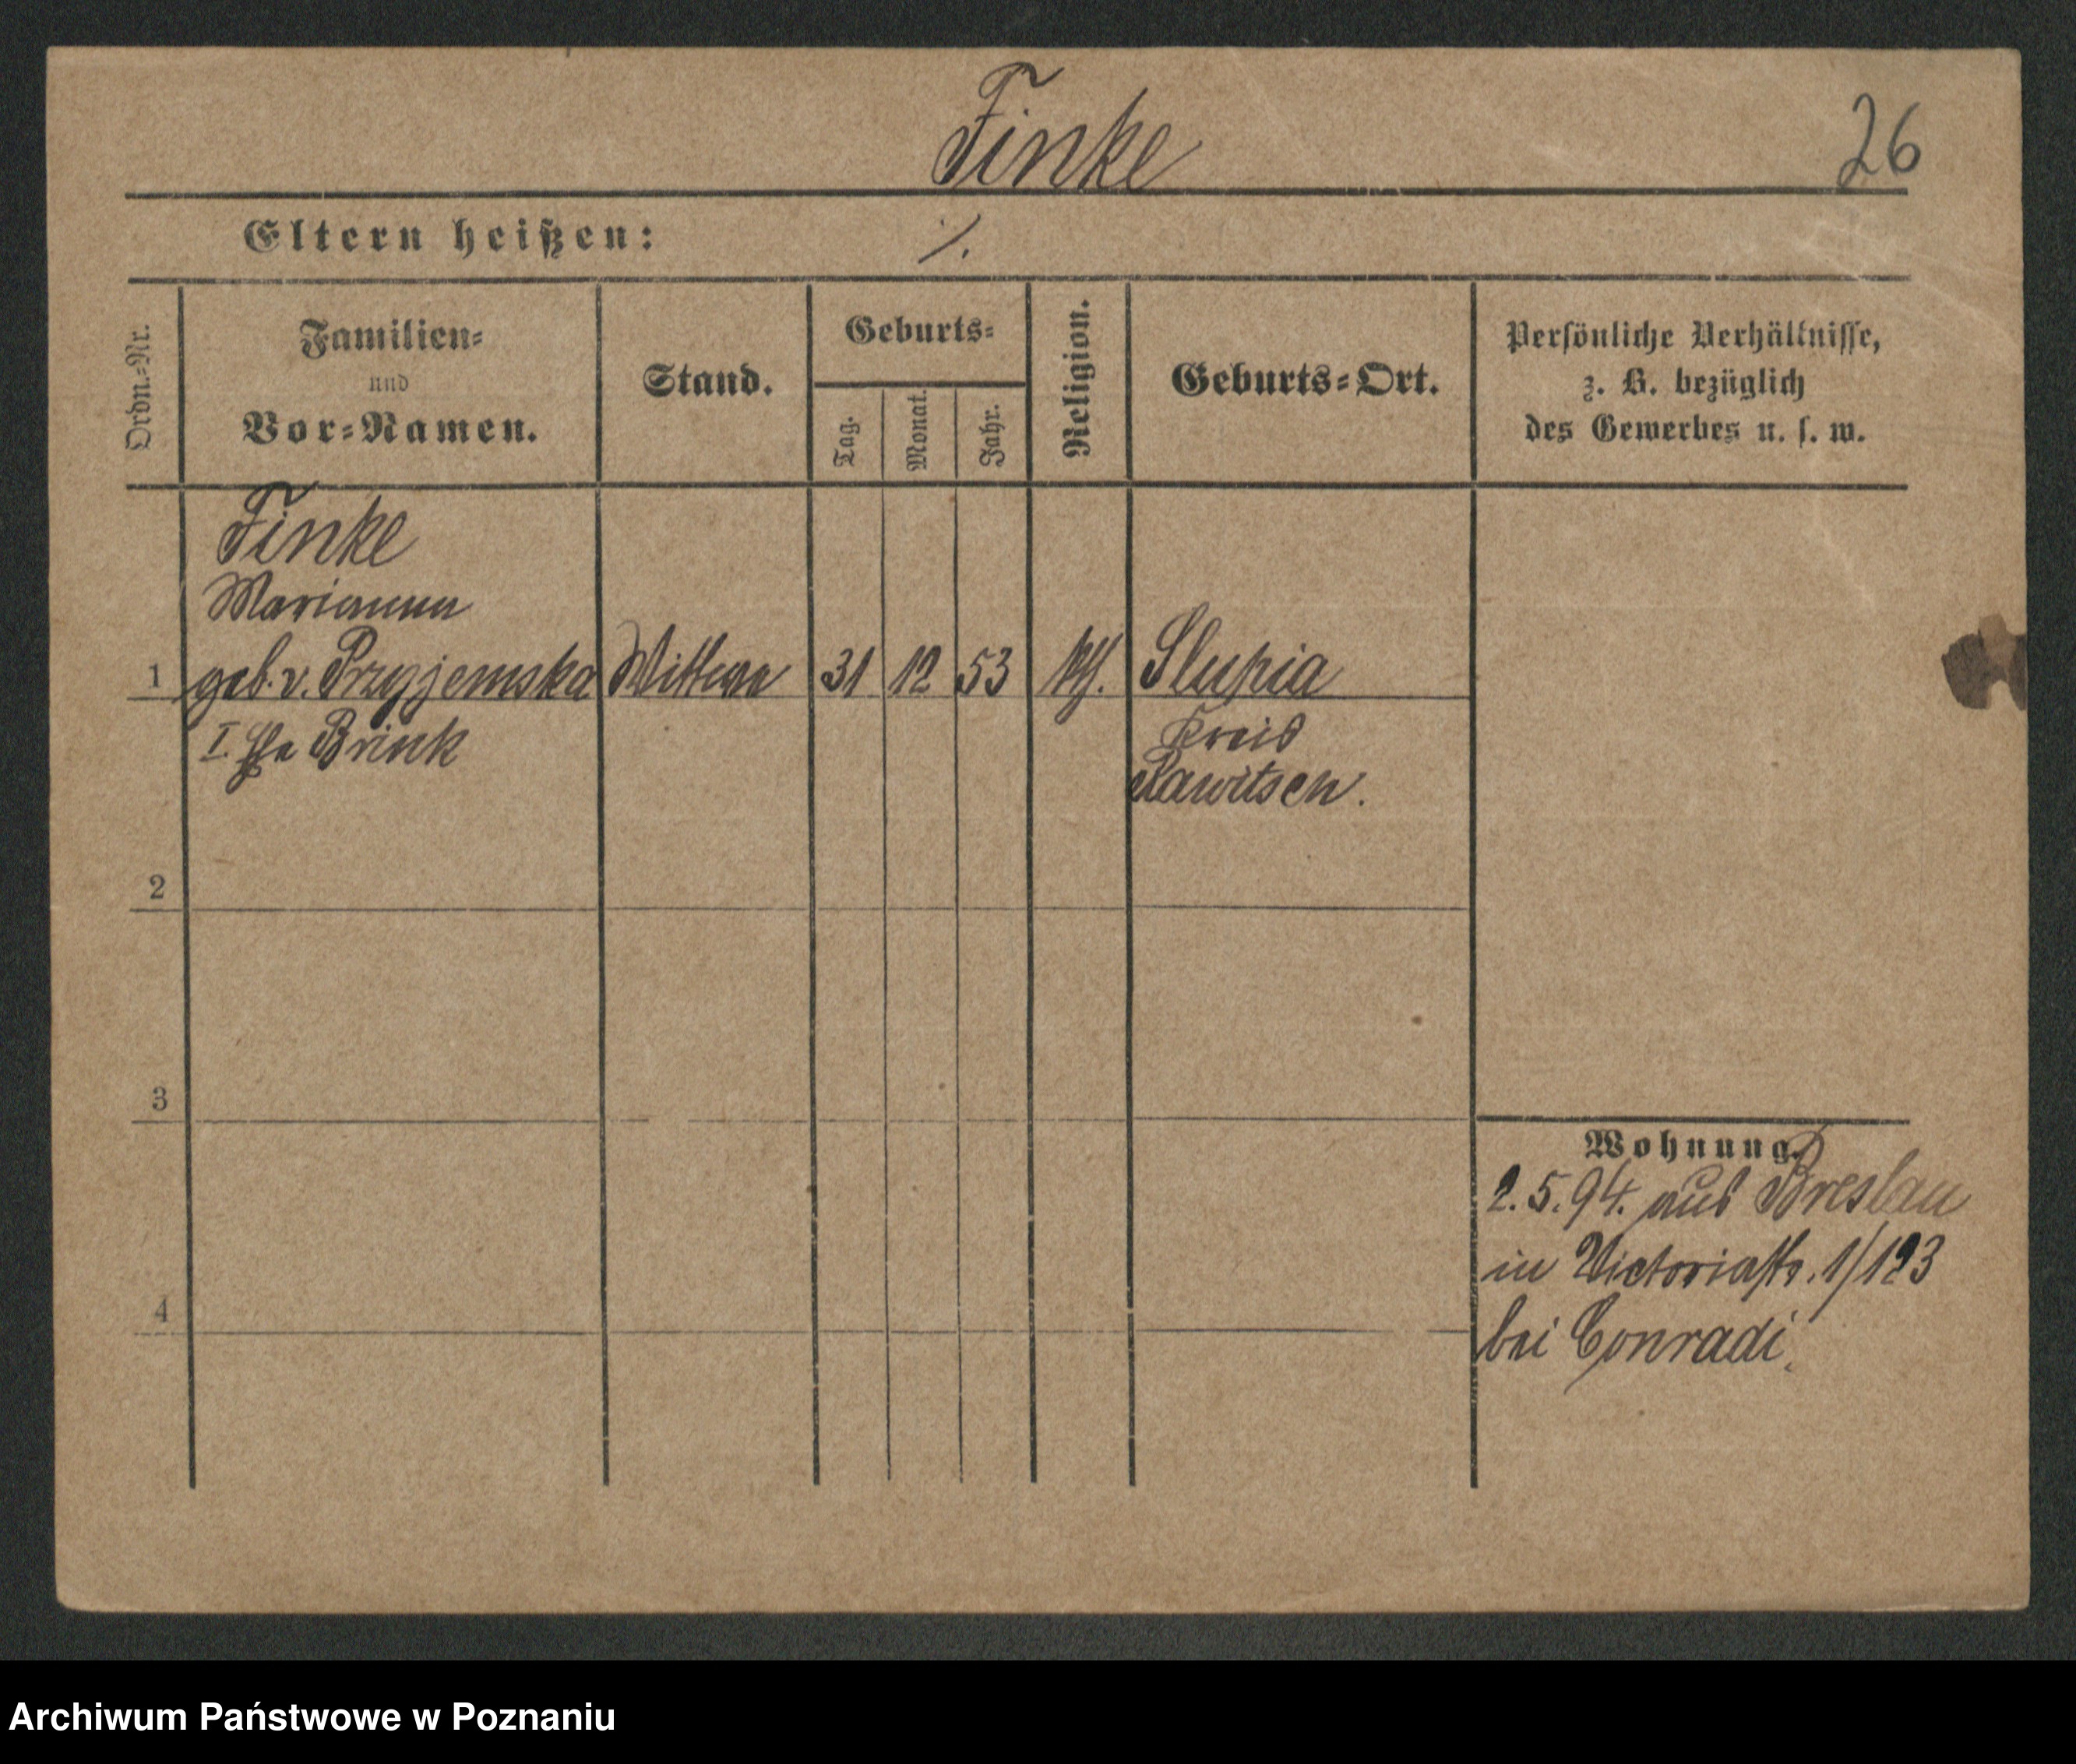 Finke
26
Eltern heißen: ·/.
Ordn.-Nr.
Familien-
und
Vor-Namen.
Stand.
Geburts-
Tag.
Monat.
Jahr.
Religion.
Geburts-Ort.
Persönliche Verhältnisse,
z. B. bezüglich
des Gewerbes u. s. w.
Finke
Marianna
1 geb. v. Przyjemska Wittwe 31 12 53 kth. Slupia
I. Ehe Brink
Kreis
Rawitsch.
2
3
4
Wohnung.
2.5.94. aus Breslau
in Victoriastr. 1/123
bei Conradi.
Archiwum Państwowe w Poznaniu